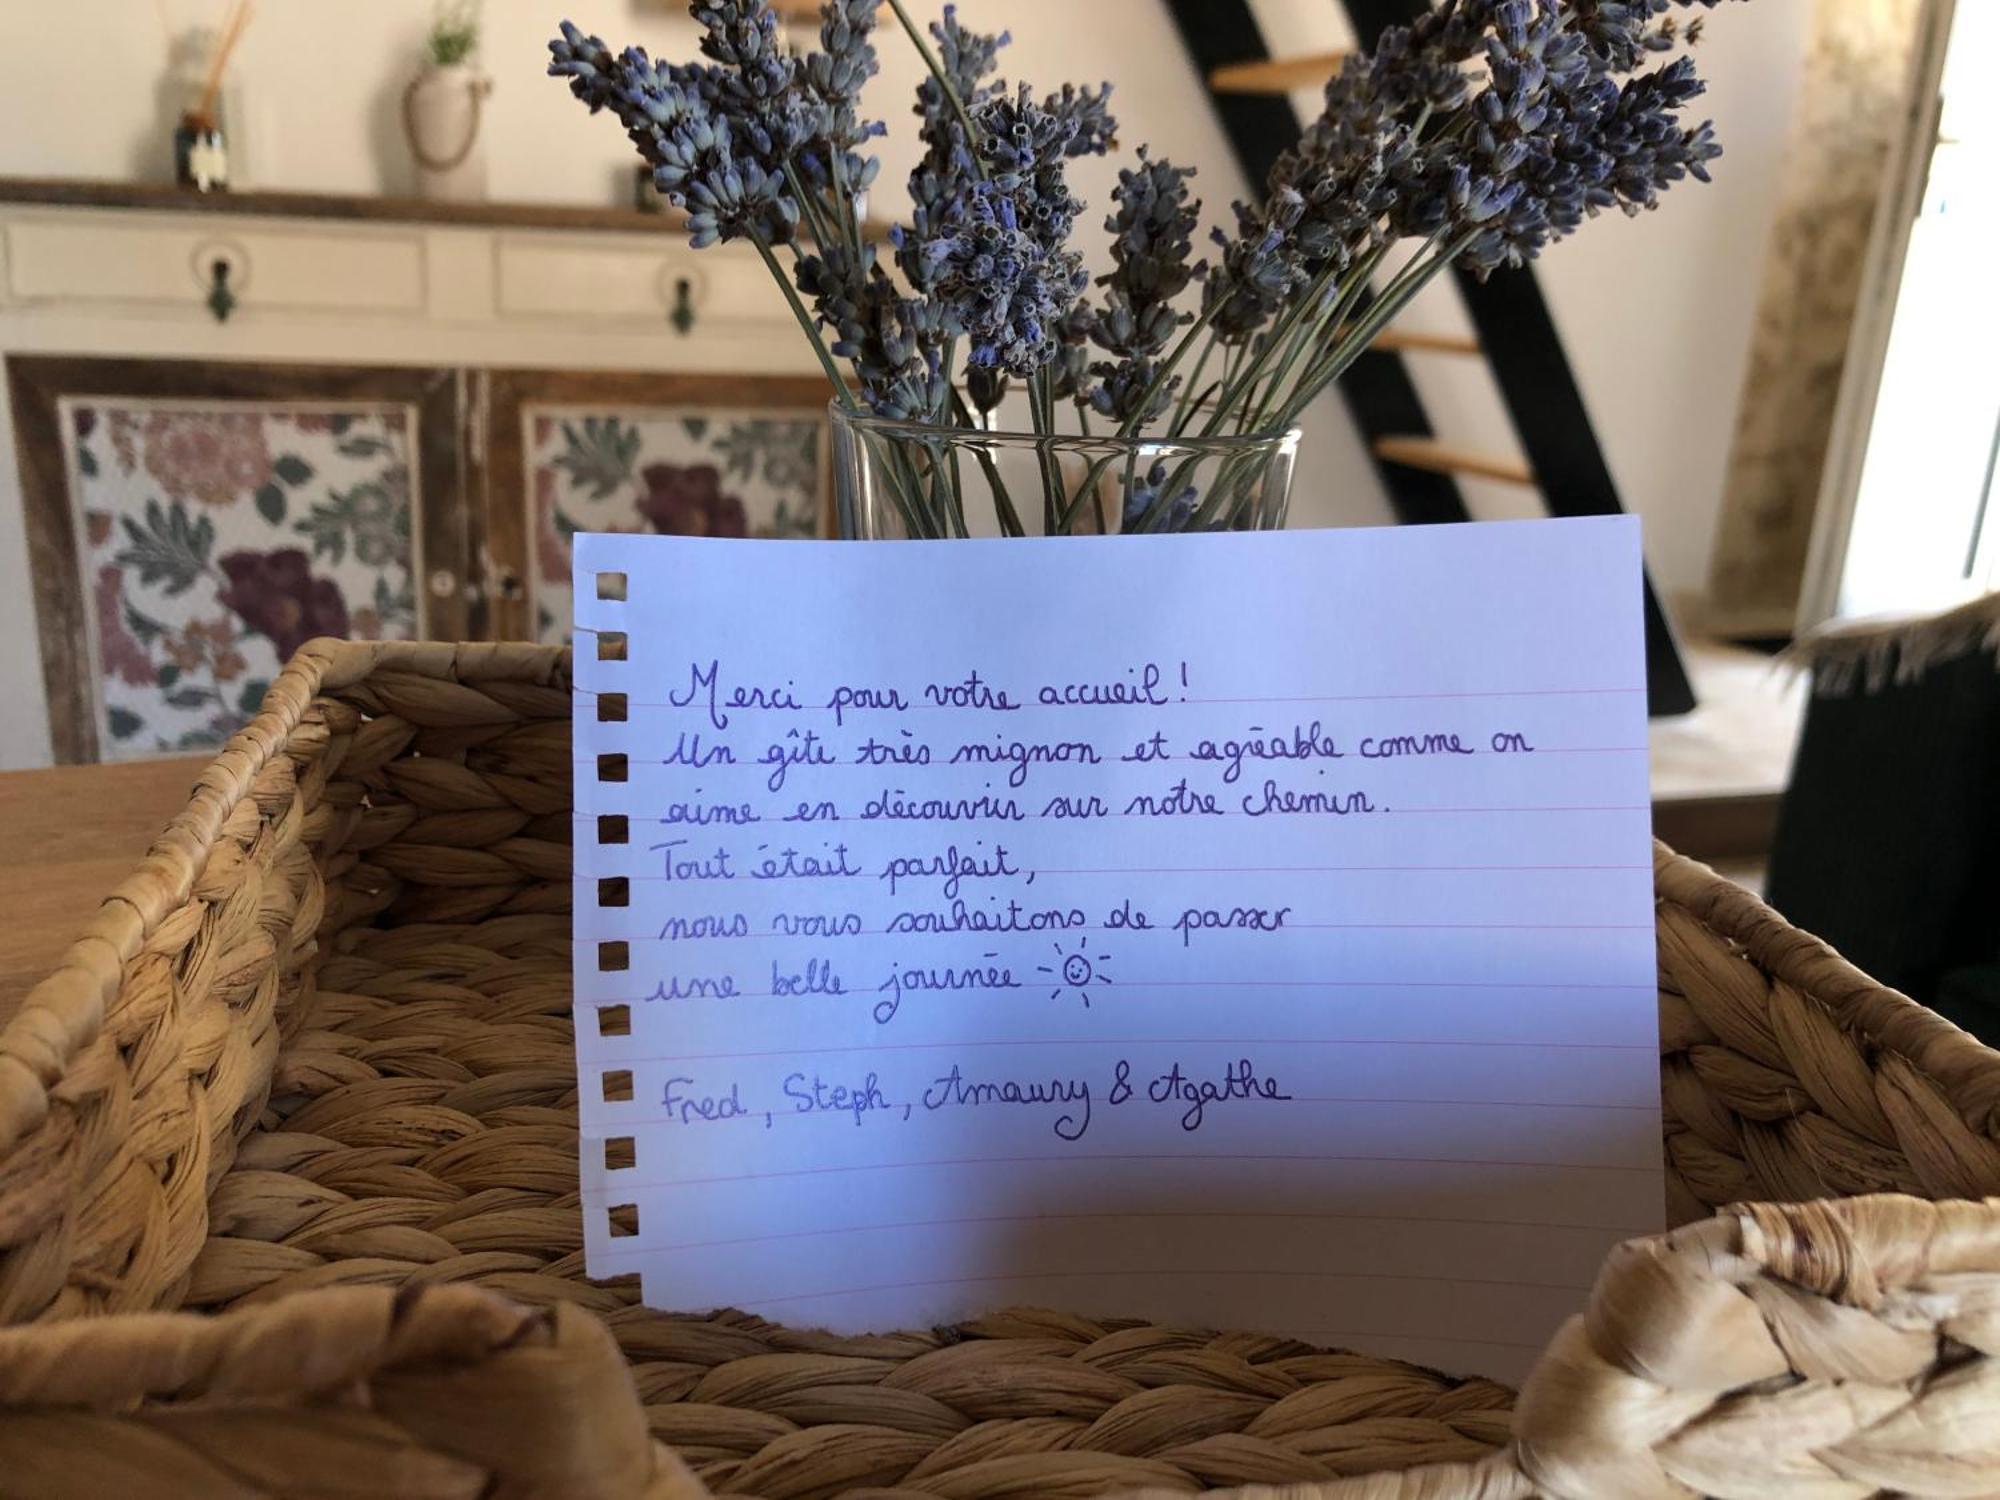 Merci pour votre accueil !
Un gîte très mignon et agréable comme on
aime en découvrir sur notre chemin.
Tout était parfait,
nous vous souhaitons de passer
une belle journée
Fred, Steph, Amaury & Agathe